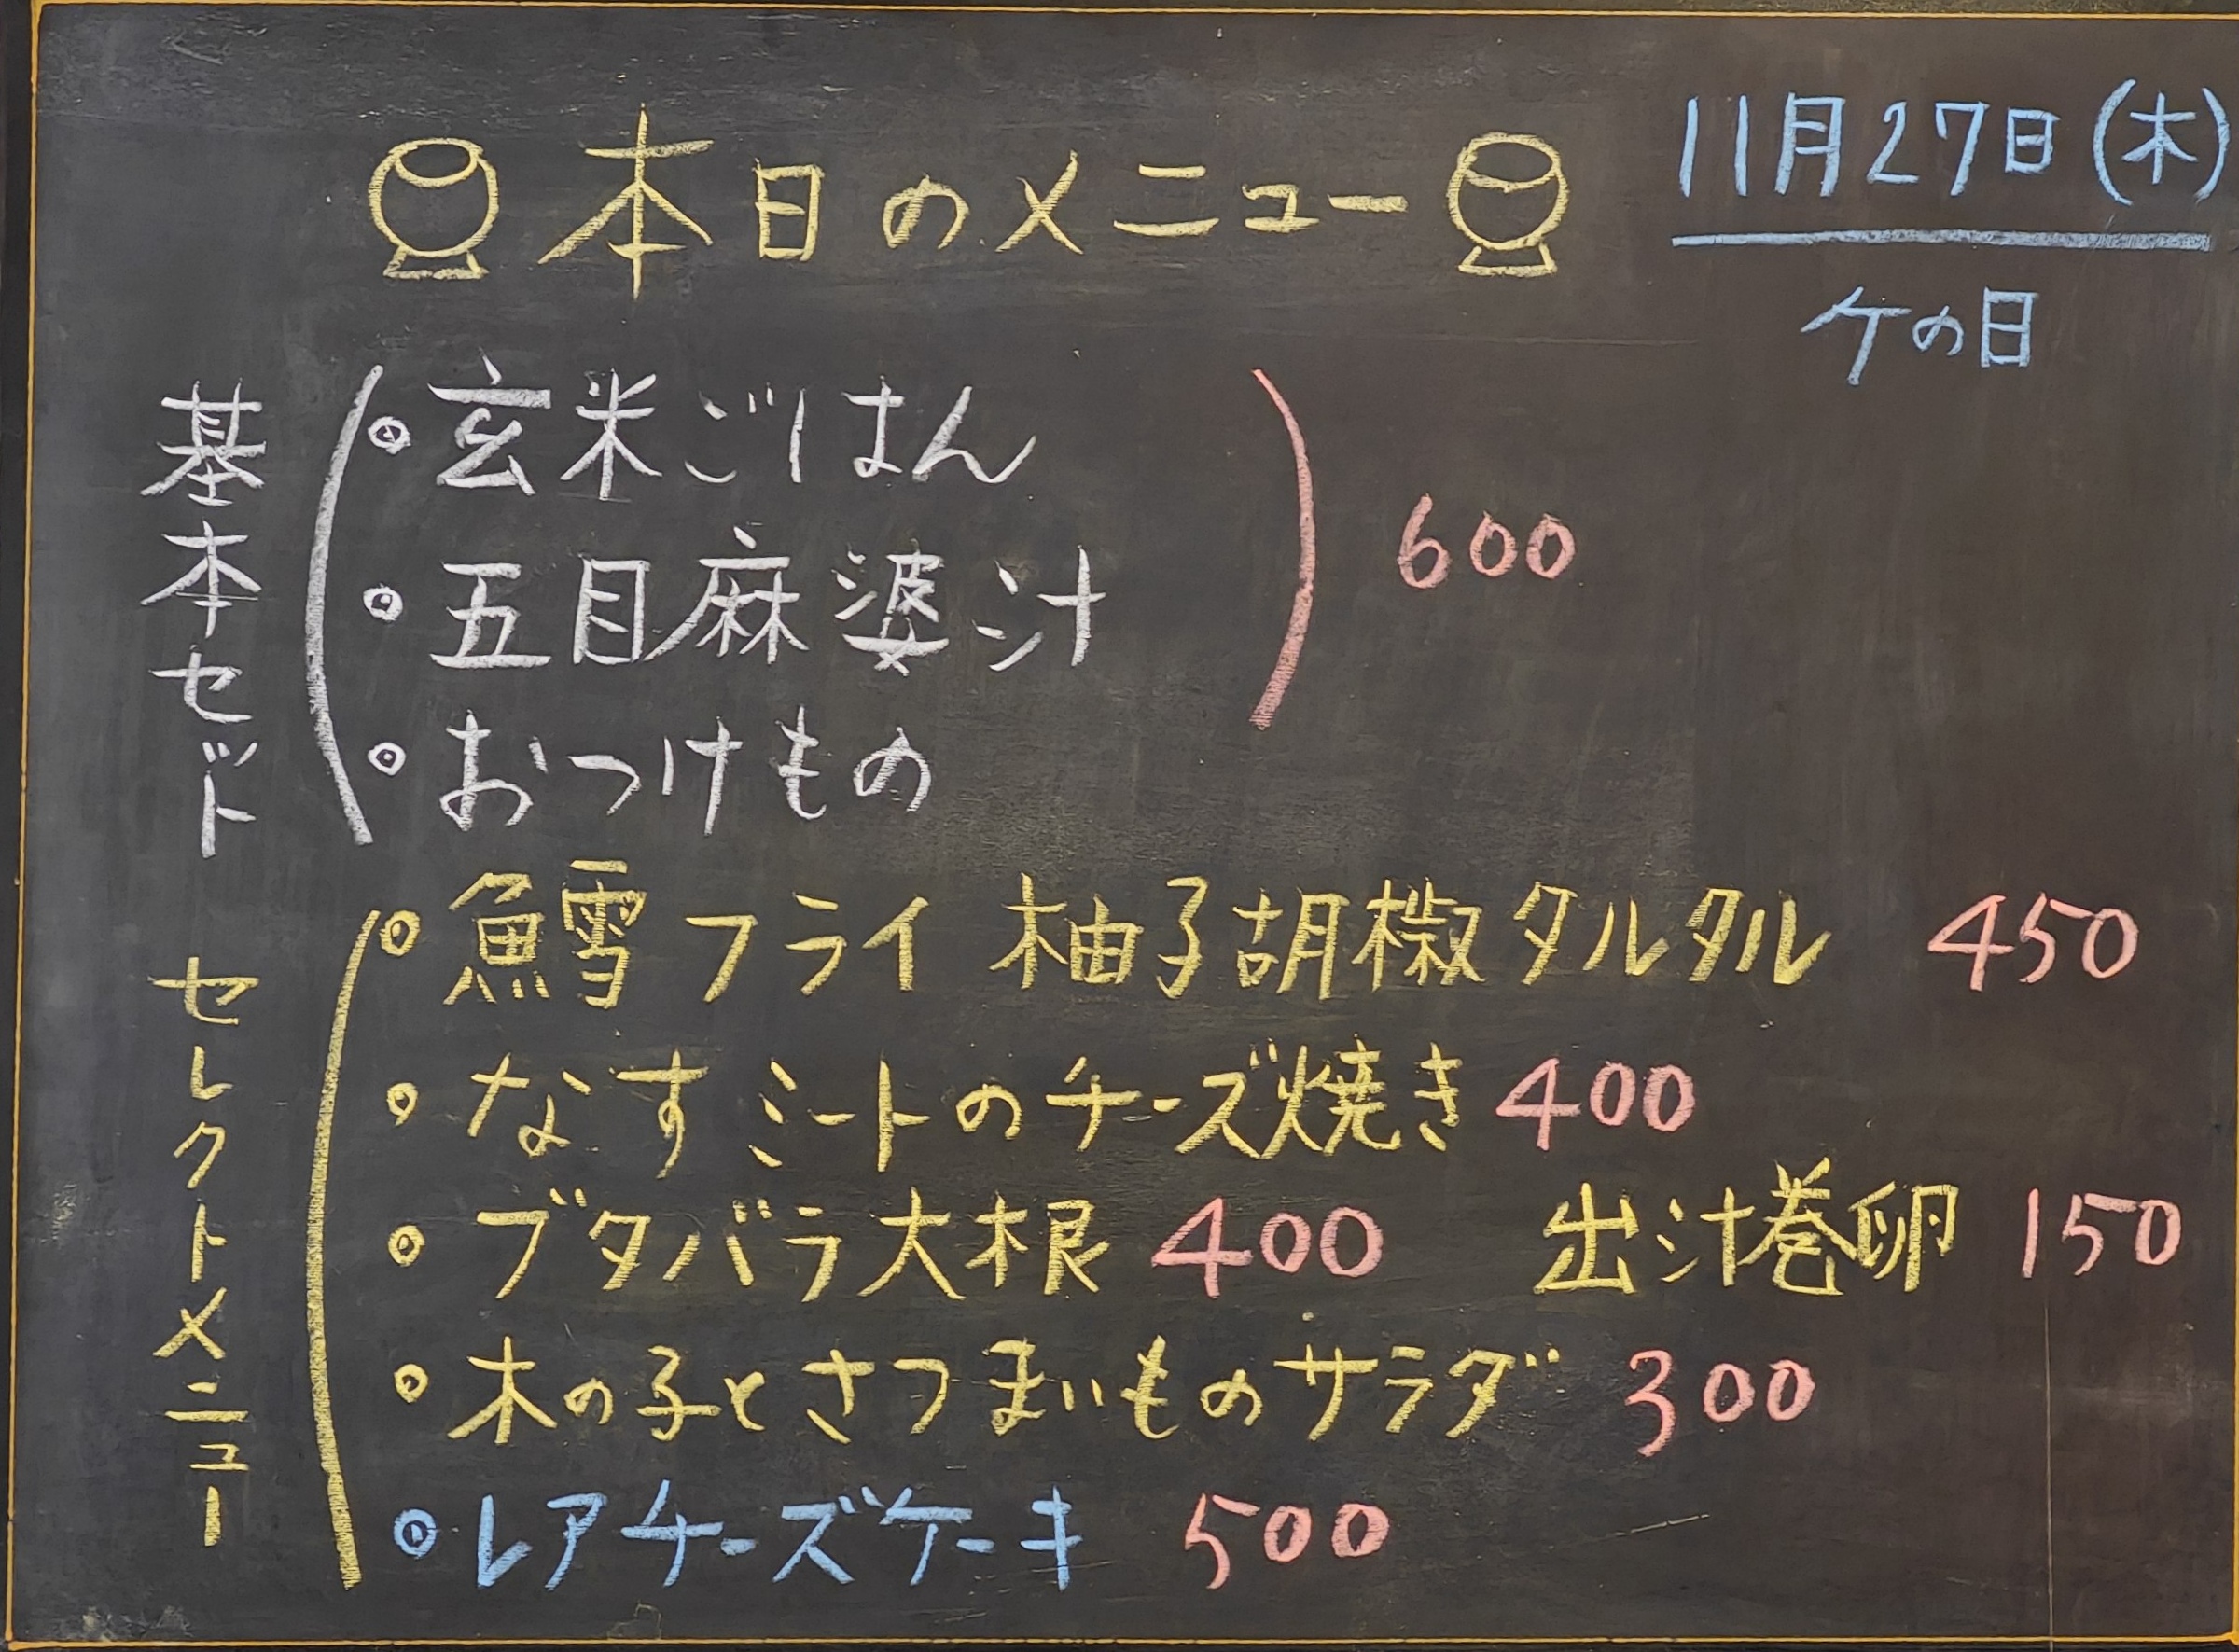 本日のメニュー
11月27日(木)
ケの日
基本セット
玄米ごはん
五目麻婆汁
おつけもの
600
セレクトメニュー
鱈フライ 柚子胡椒タルタル 450
なすミートのチーズ焼き 400
ブタバラ大根 400 出汁巻卵 150
木の子とさつまいものサラダ 300
レアチーズケーキ 500